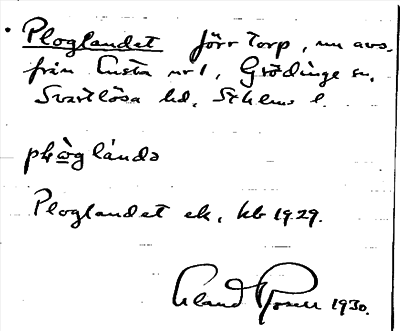 Ploglandet förr torp, nu avs.
från Önsta nr 1, Grödinge sn,
Svartlösa hd, Sthlms l.
plò̱glándə
Ploglandet ek. kb 1929.
Erland Rosell 1930.